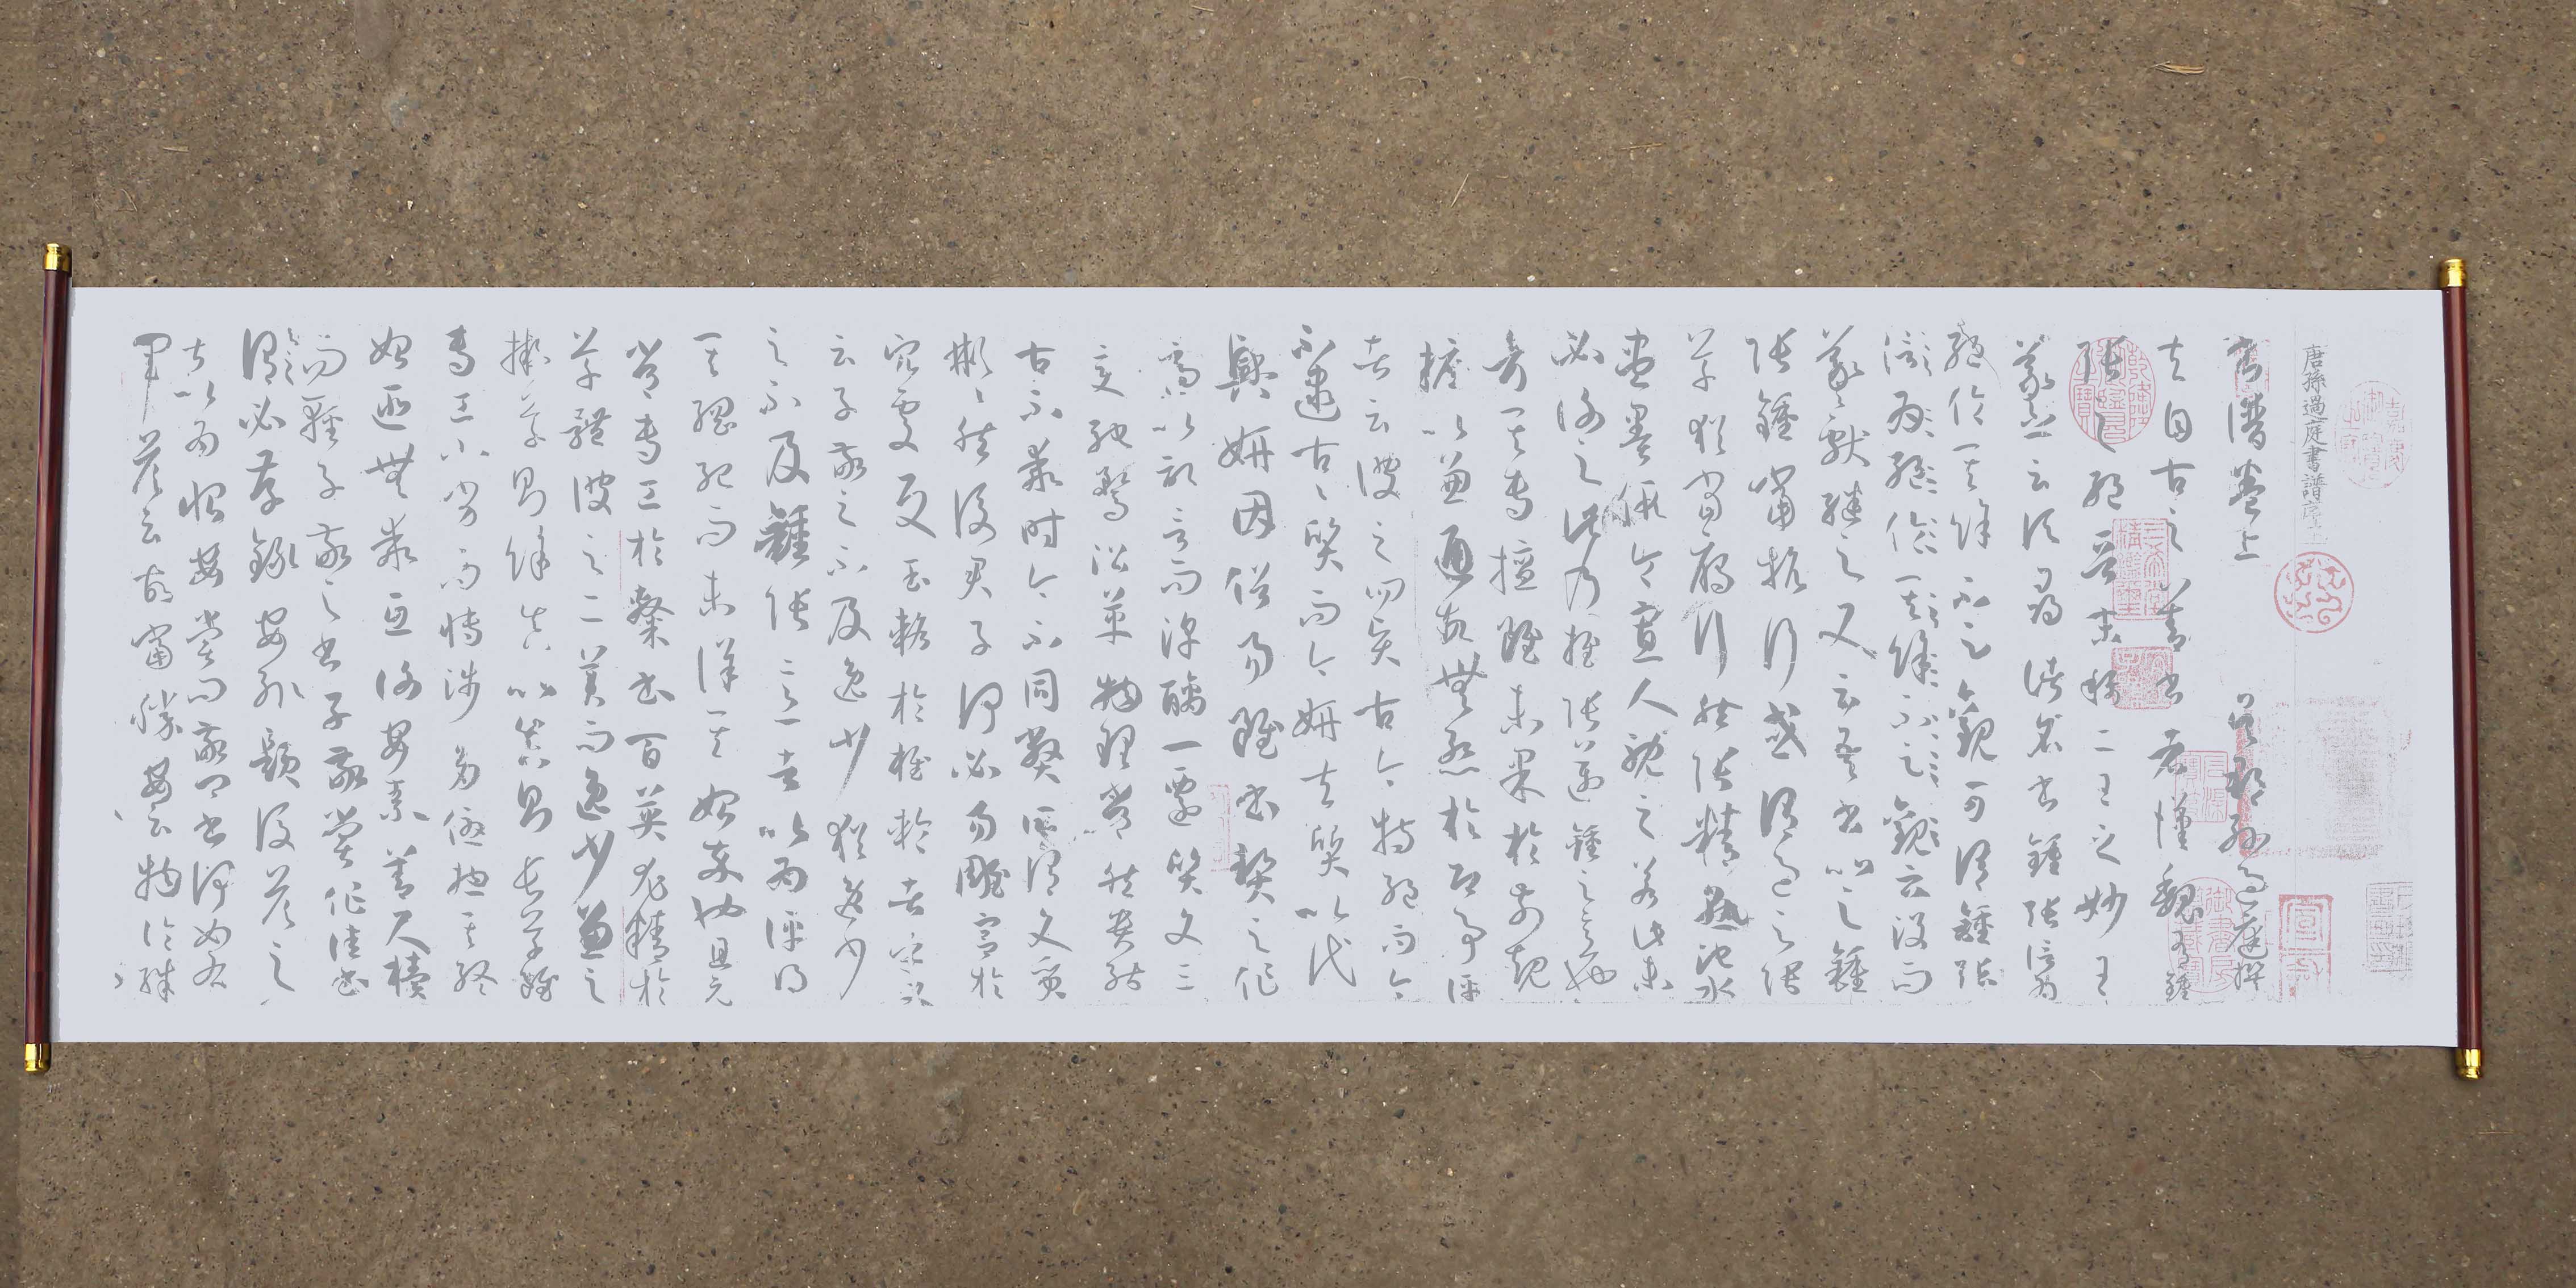 唐孫過庭書譜序
書譜卷上 吳郡孫過庭撰
夫自古之善書者漢魏有鍾
張之絕晉末稱二王之妙王
羲之云頃尋諸名書鍾張信為
絕倫其餘不足觀可謂鍾張
信為絕倫其餘不足觀云沒而
羲獻繼之又云吾書比之鍾
張鍾當抗行或謂過之張
草猶當鴈行然張精熟池水
盡墨假令寡人耽之若此未
必謝之此乃推張邁鍾之意也
考其專擅雖未果於前規
摭以兼通故無慚於即事評
者云彼之四賢古今特絕而今
不逮古古質而今妍夫質以代
興妍因俗易雖書契之作
適以記言而淳醨一遷質文三
變馳騖沿革物理常然貴能
古不乖時今不同弊所謂文質
彬彬然後君子何必易雕宮於
穴處反玉輅於椎輪者乎又
云子敬之不及逸少猶逸少
之不及鍾張意者以為評得
其綱紀而未詳其始卒也且元
常專工於隸書百英尤精於
草體彼之二美而逸少兼之
擬草則餘真比真則長草雖
專工小劣而博涉多優總其終
始匪無乖互謝安素善尺牘
而輕子敬之書子敬嘗作佳書與之
謂必存錄安輒題後答之
甚以為恨安嘗問敬卿書何如右
軍答云故當勝安云物論殊